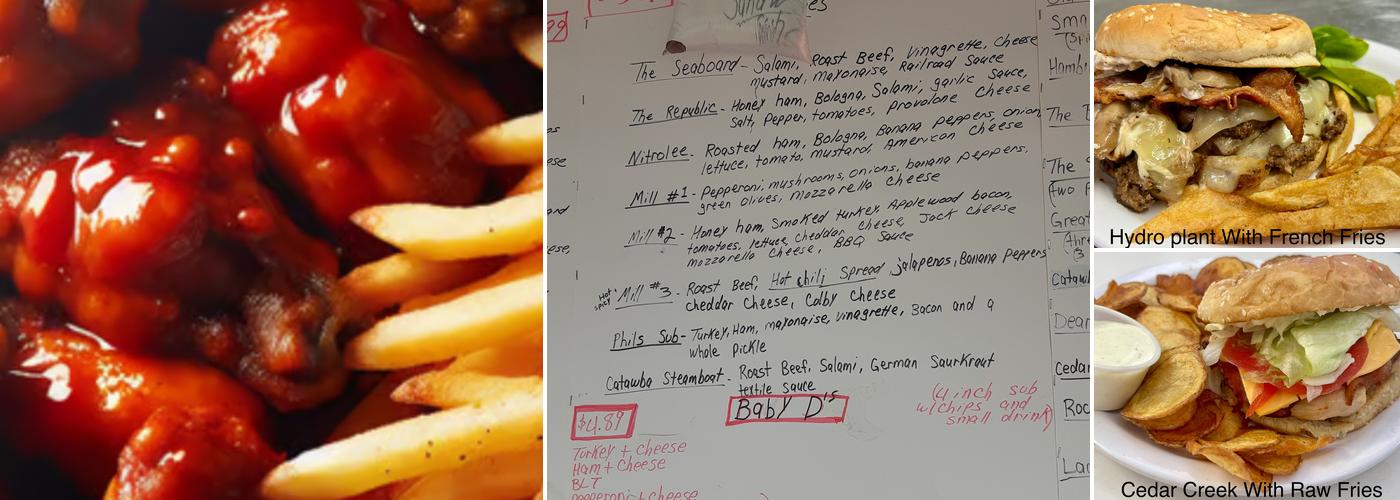 The Seaboard - Salami, Roast Beef, Vinagrette, Cheese
mustard, mayonaise, Railroad Sauce
The Republic - Honey ham, Bologna, Salami, garlic sauce,
Salt, Pepper, tomatoes, provolone Cheese
Nitrolee - Roasted ham, Bologna, Banana peppers, onion
lettuce, tomato, mustard, American Cheese
Mill #1 - Pepperoni, mushrooms, onions, banana peppers,
green olives, mozzarella cheese
Mill #2 - Honey ham, Smoked turkey, Applewood bacon,
tomatoes, lettuce, cheddar cheese, Jack cheese
mozzarella cheese, BBQ Sauce
Hot Spicy Mill #3 - Roast Beef, Hot chili Spread jalapenos, Banana Peppers
cheddar Cheese, Colby Cheese
Phils Sub - Turkey, Ham, mayonaise, vinagrette, Bacon and a
whole pickle
Catawba Steamboat - Roast Beef, Salami, German Saurkraut
textile sauce
Baby D's
(4 inch sub
w/chips and
small drink)
$4.89
Turkey + cheese
Ham + Cheese
BLT
pepperoni + cheese
Hydro plant With French Fries
Cedar Creek With Raw Fries